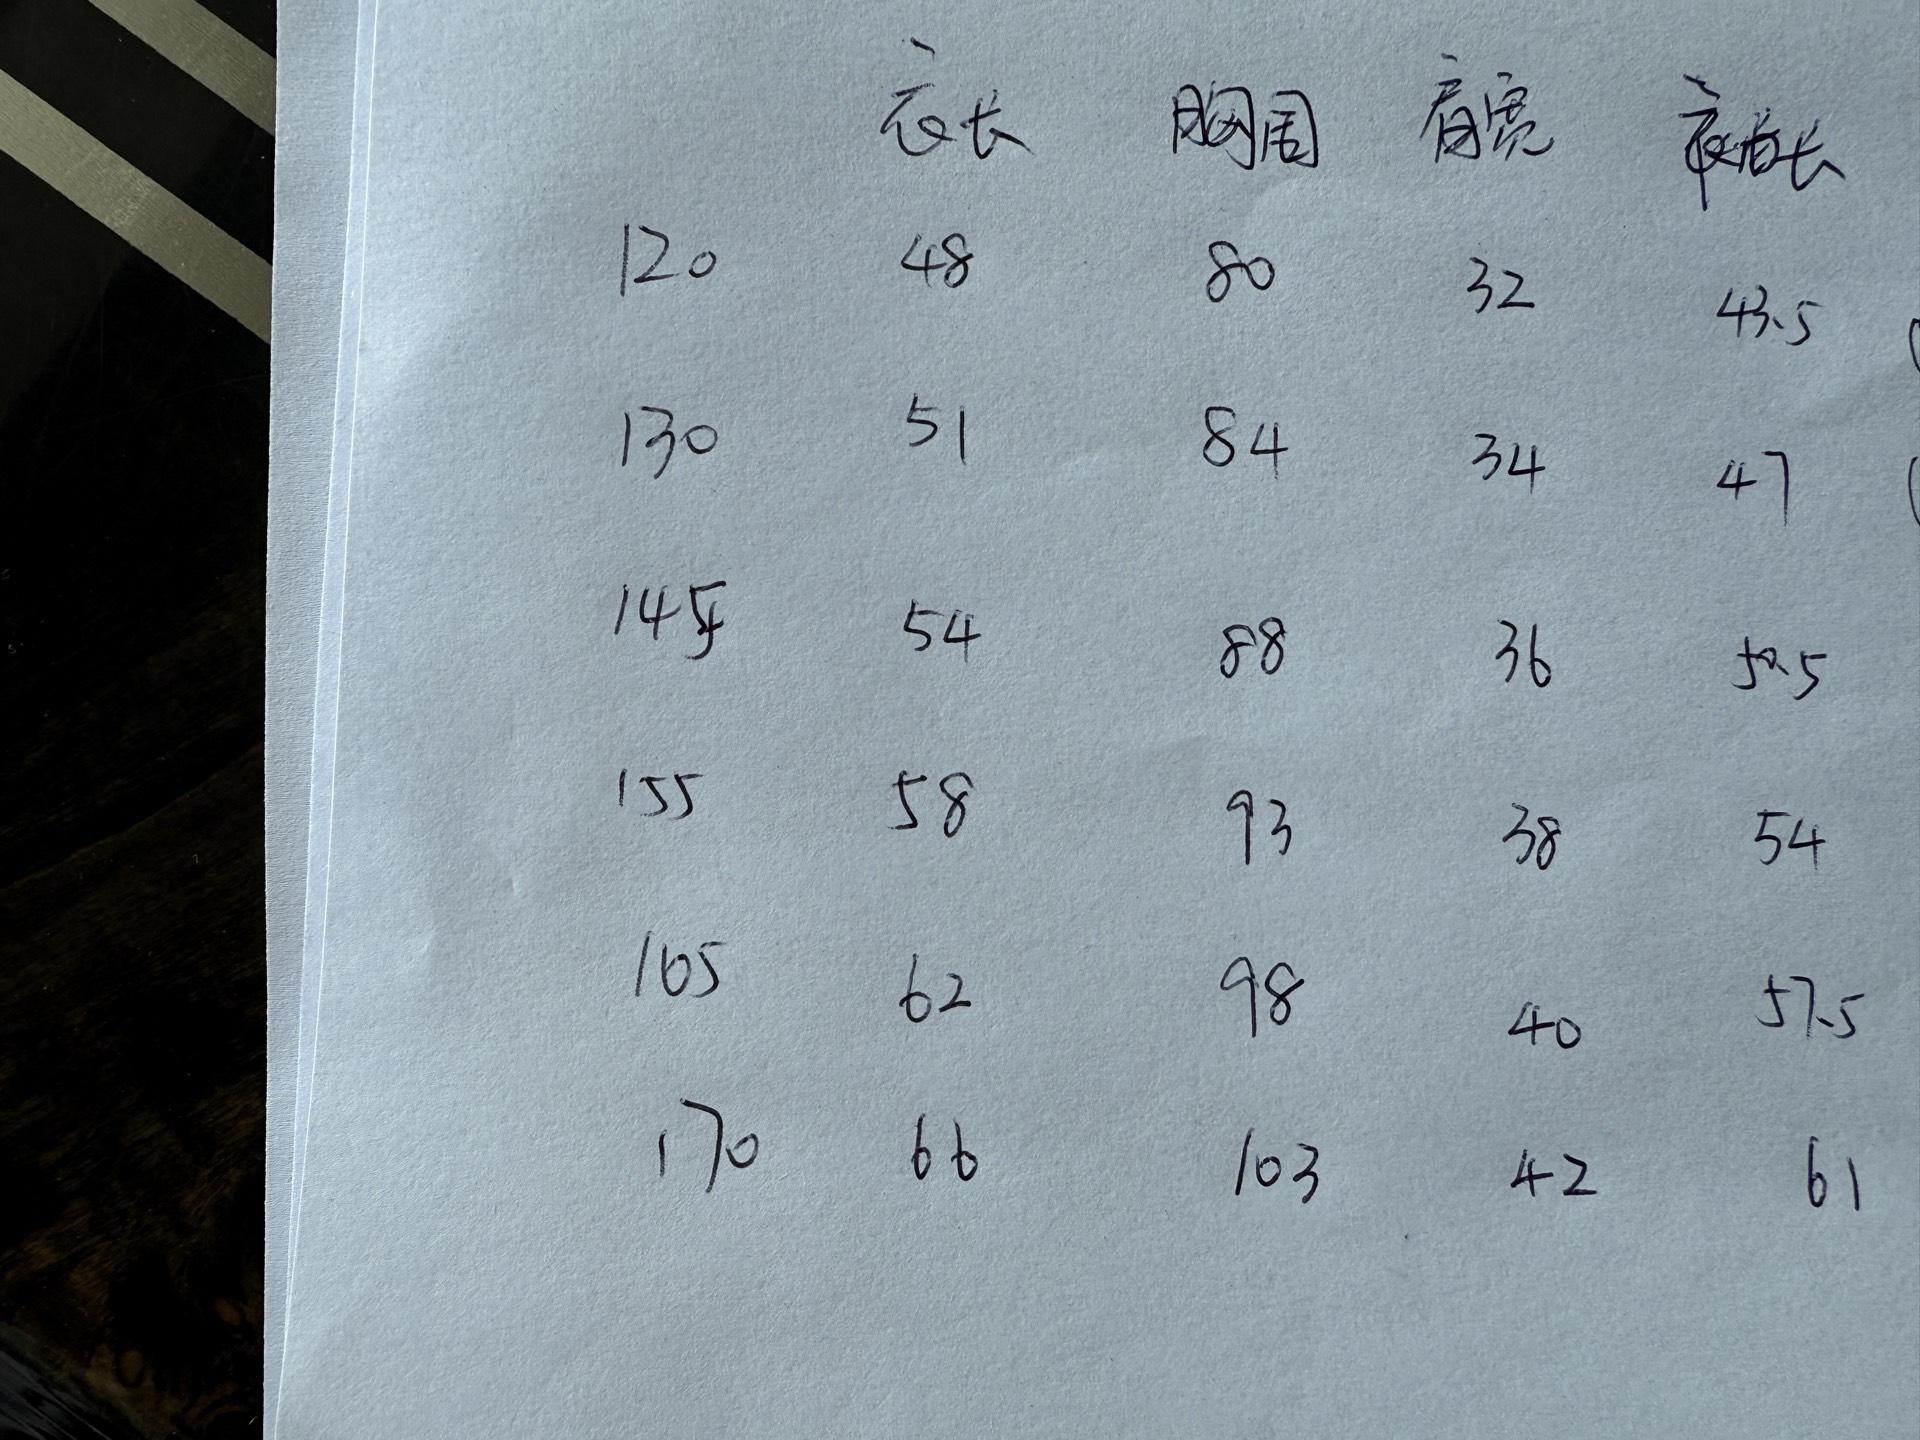 衣长 胸围 肩宽 袖长
120 48 80 32 43.5
130 51 84 34 47
145 54 88 36 50.5
155 58 93 38 54
165 62 98 40 57.5
170 66 103 42 61